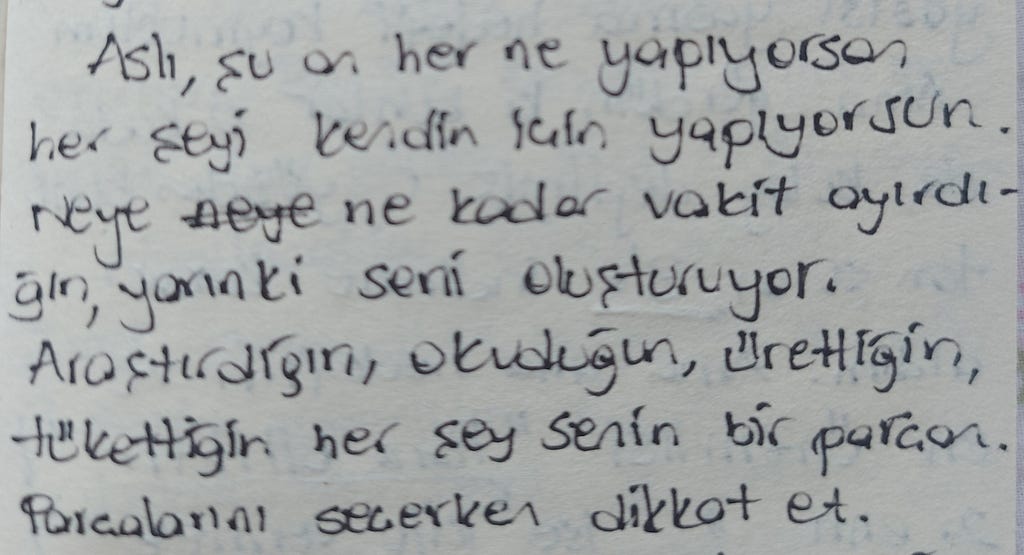 Aslı, şu an her ne yapıyorsan
her şeyi kendin için yapıyorsun.
Neye neye ne kadar vakit ayırdı-
ğın, yarınki seni oluşturuyor.
Araştırdığın, okuduğun, ürettiğin,
tükettiğin her şey senin bir parçan.
Parçalarını seçerken dikkat et.